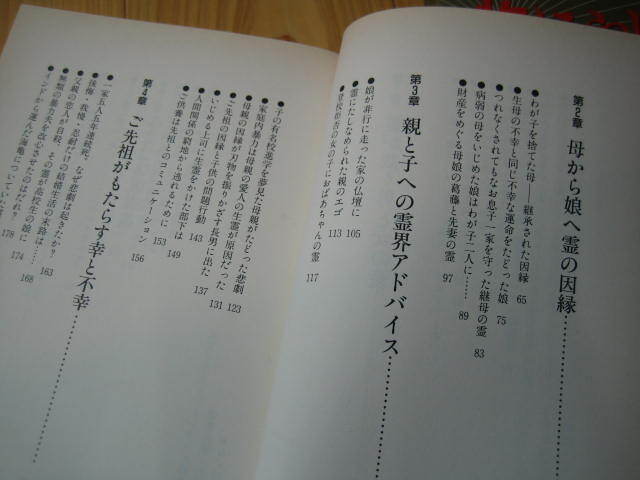 第2章 母から娘へ霊の因縁……………
●わが子を捨てた母——継承された因縁 65
●生母の不幸と同じ不幸な運命をたどった娘 75
●つれなくされてもなお息子一家を守った継母の霊 83
●病弱の母をいじめた娘はわが子二人に…… 89
●財産をめぐる母娘の葛藤と先妻の霊 97
第3章 親と子への霊界アドバイス……………
●娘が非行に走った家の仏壇に 105
●霊にたしなめられた親のエゴ 113
●登校拒否の女の子におばあちゃんの霊 117
●子の有名校進学を夢見た母親がたどった悲劇 123
●家庭内暴力は母親の愛人の生霊が原因だった 131
●母親の因縁が刃物を振りかざす長男に出た 137
●ご先祖の因縁と子供の問題行動 143
●いじめる上司に生霊をかけた部下は 149
●人間関係の窮地から逃れるために 153
●ご供養は先祖とのコミュニケーション 156
第4章 ご先祖がもたらす幸と不幸……………
●一家五人五年連続死、なぜ悲劇は起きたか? 163
●後悔・我慢・忍耐だけの結婚生活の末路は…… 168
●父親の恋人が自殺、その霊が高校生の娘に 174
●無類の暴力夫を改心させたのはだれ? 178
●インドから運んだ海亀についていた